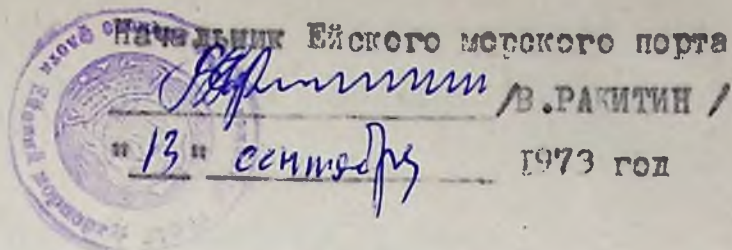 Начальник Ейского морского порта
/В.РАКИТИН /
"13" сентября 1973 год